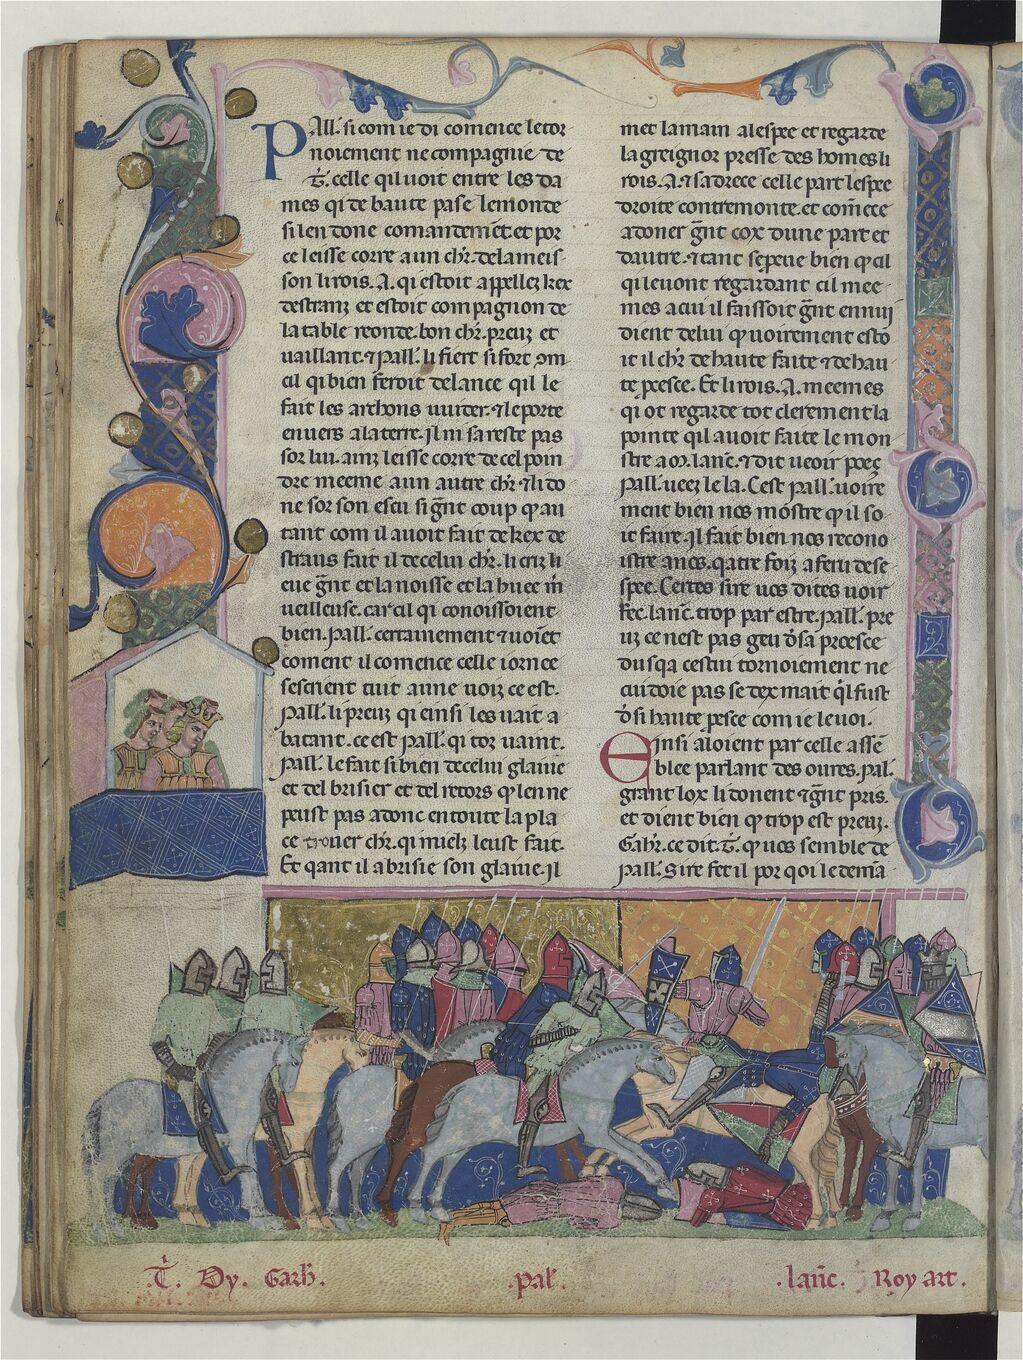 Pall. si com ie di comence le tor
noiement ne compagnie de
T. celle qil uoit entre les da
mes qi de haute pase le monde
si len done comandemēt et por
ce leisse corre a un chr. de la meis-
son li rois. A. qi estoit appellez kex
destranz et estoit compagnon de
la table reonde. bon chr. preuz et
uaillant. ⁊ pall. li fiert si fort 9m
cil qi bien feroit de lance qil le
fait les archons uuider. ⁊ le porte
enuers a la terre. Jl ni sareste pas
sor lui. ainz leisse corre de cel poin
dre meeme a un autre chr. ⁊ li do
ne sor son escu si gn̄t coup q̄ au
tant com il auoit fait de kex de
straus fait il de celui chr. li criz li
eue gn̄t et la noisse et la huee m̄
ueilleuse. car cil qi conoissoient
bien. pall. certainement ⁊ uoiet
coment il comence celle iornee
sescrient tuit a une uoiz ce est.
pall. li preuz qi einsi les uait a
batant. ce est pall. qi tot uaint.
pall. le fait si bien de celui glaiue
et tel brisier et tel retors q̄ len ne
peust pas adonc en toute la pla
ce trouer chr. qi mielz leust fait.
Et qant il a brisie son glaiue. il
met la main a lespee et regarde
la greignor presse des homes li
rois. A. ⁊ sadrece celle part lespee
droite contremonte. et com̄ece
a doner gn̄t cox dune part et
dautre. ⁊ tant se peue bien q̄ cil
qi le uont regardant cil mee
mes a cui il faissoit gn̄t ennui
dient de lui q̄ uoirement esto
it il chr. de haute faite ⁊ de hau
te pcesce. Et li rois. A. meemes
qi ot regarde tot clerement la
pointe qil auoit faite le mon
stre a. lanc̄. ⁊ dit ueoir poez
pall. ueez le la. Cest pall. uoire
ment bien nos mōstre q̄ il so
it faire. Jl fait bien nos recono
istre anos. qatre foiz a feru de se
spee. Certes sire uos dites uoir
fet. lanc̄. trop par estre. pall. pre
uz ce nest pas geu d̄ sa proesce
dusqa cestui tornoiement ne
cuidoie pas se dex mait q̄l fust
d̄ si haute pcesce com ie le uoi.
Einsi aloient par celle assē
blee parlant des oures. pal.
grant lox li donent ⁊ gn̄t pris.
et dient bien q̄ trop est preuz.
Gahr. ce dit. T. q̄ uos semble de
pall. Sire fet il por qoi le demā
.T. Dy. Garh. .pal. .lanc̄. Roy art.